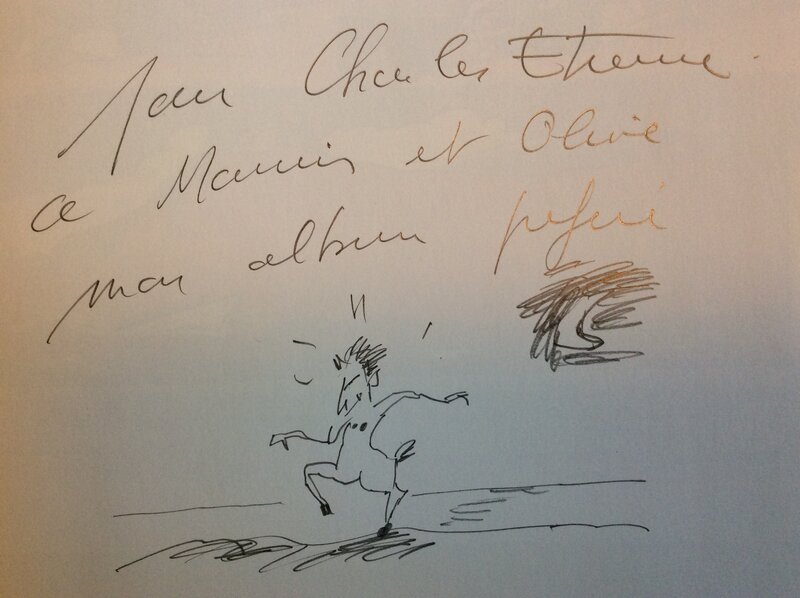 Pour Charles Etienne.
ce Mamin et Olive
mon album préféré